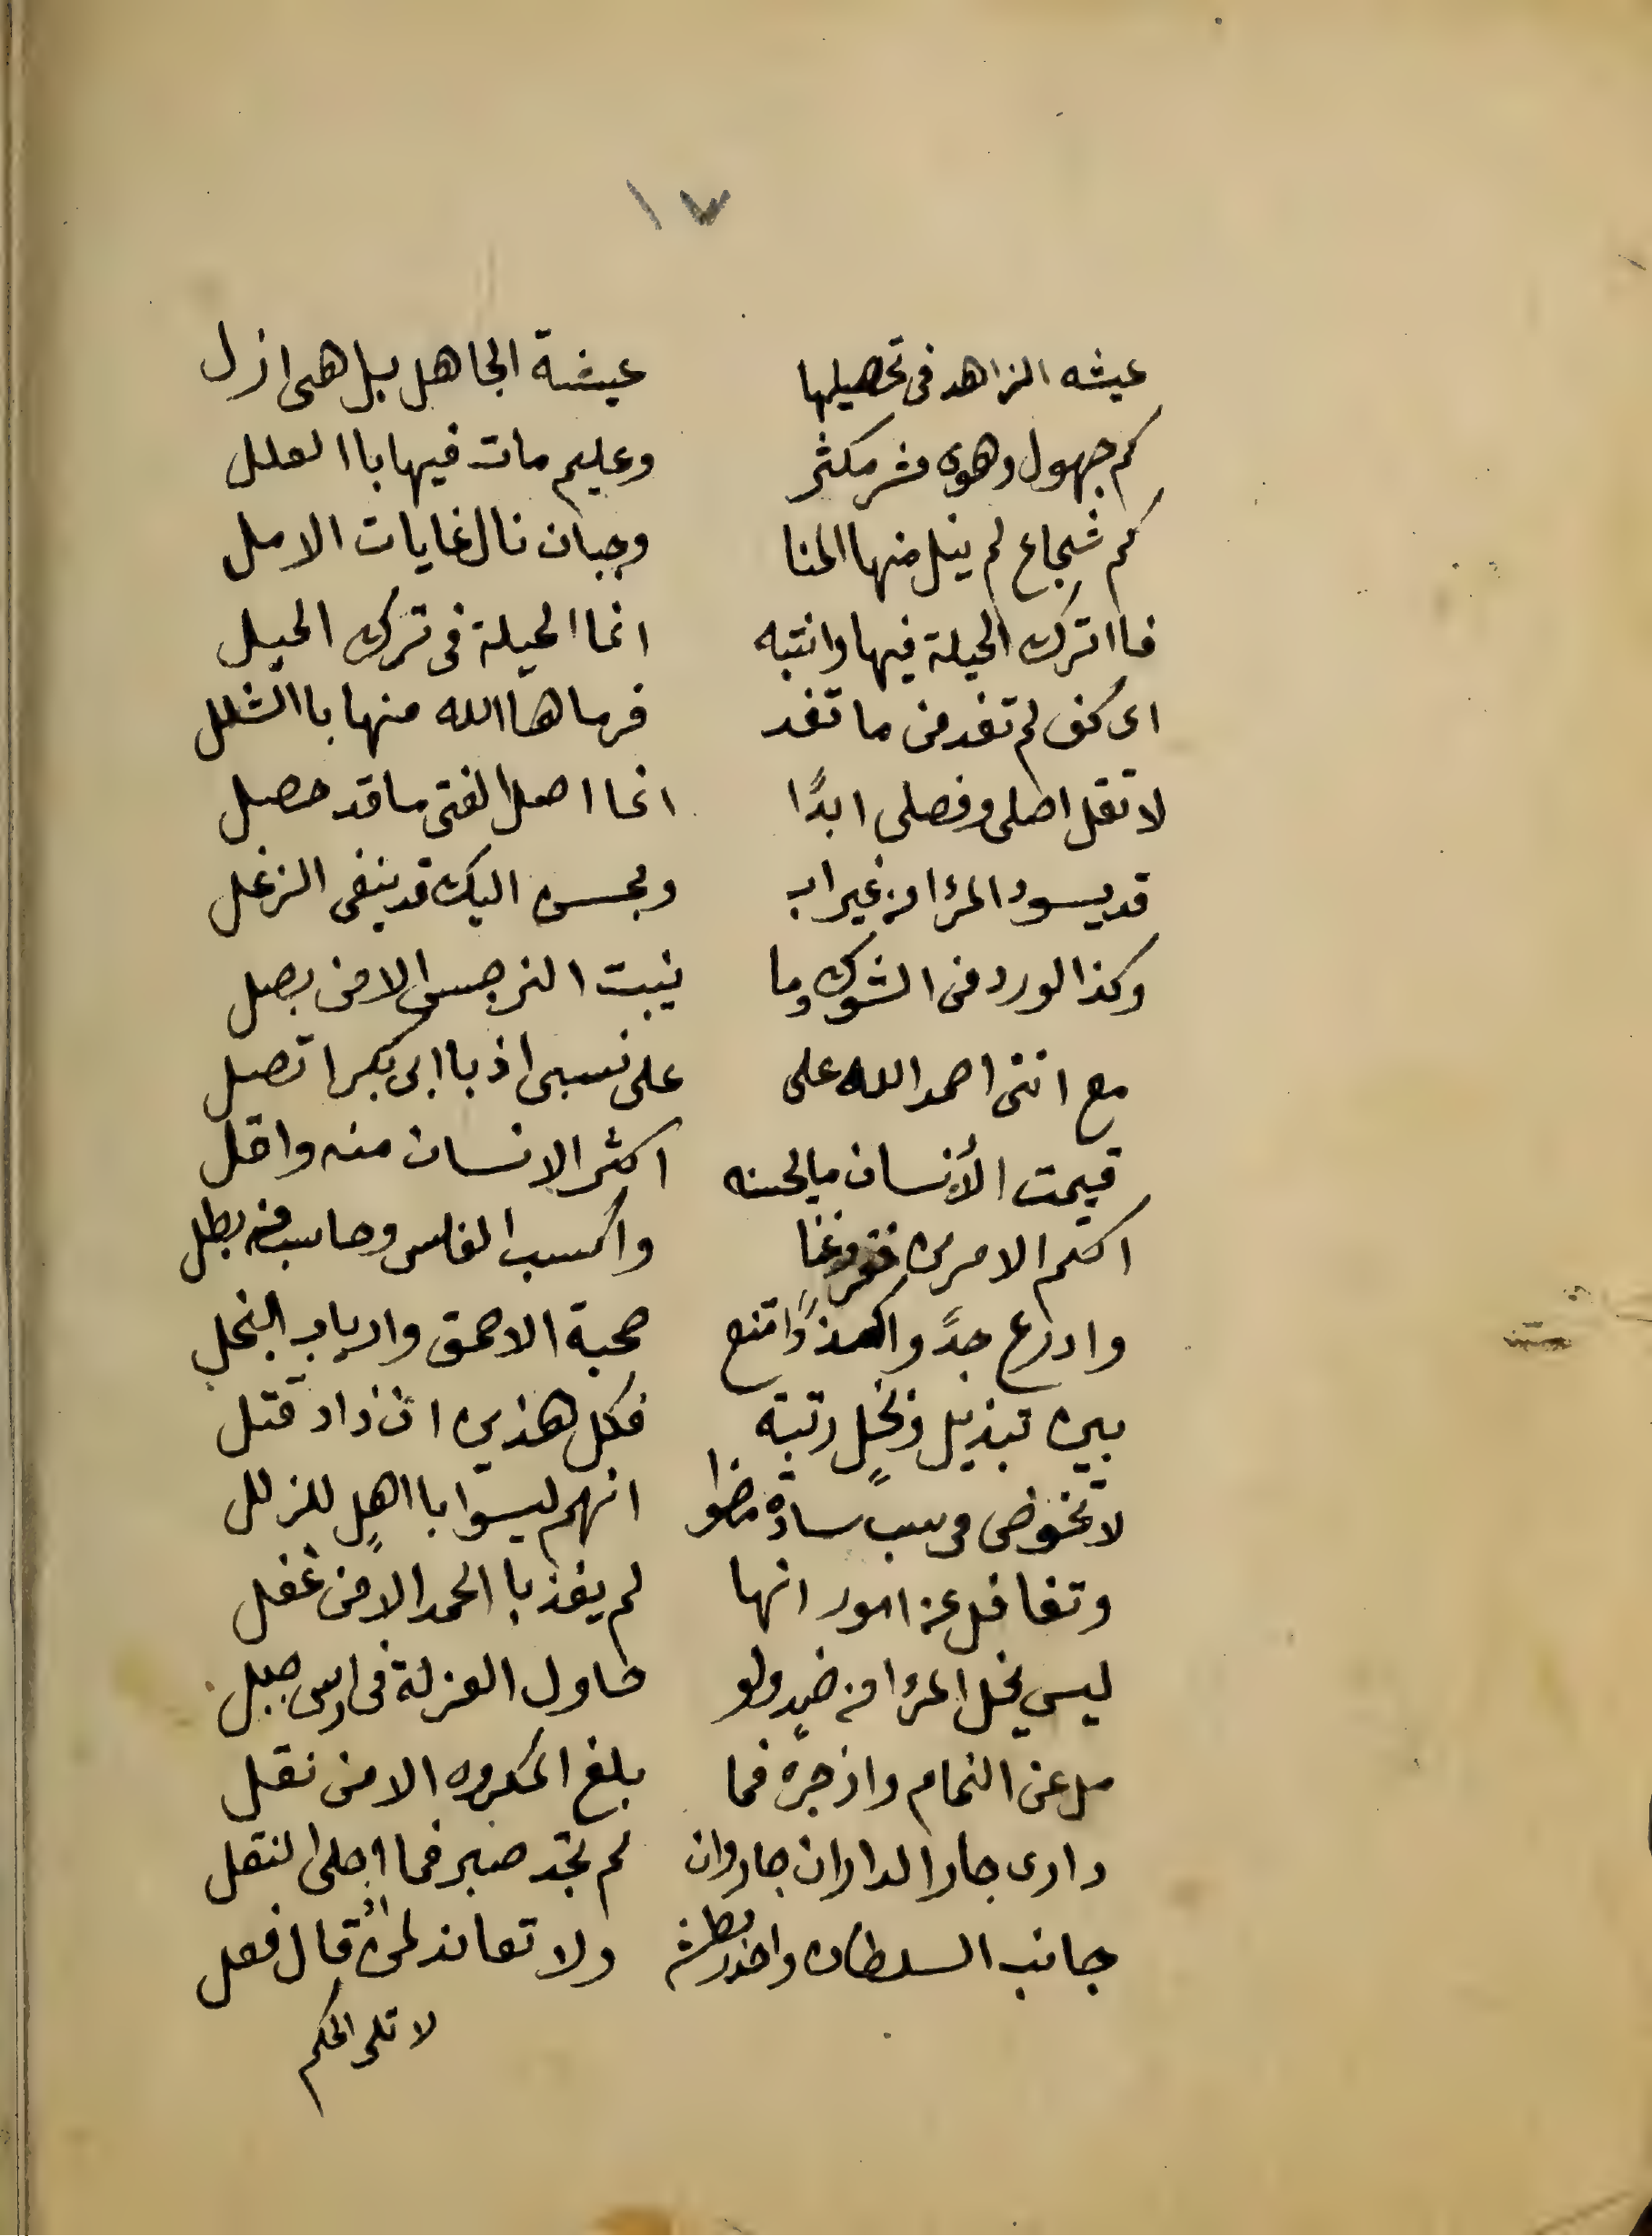 ١٧
عيشه الزاهد فى تحصيلها عيشة الجاهل بل هى ازل
كم جهول وهوى مثر مكثر وعليم مات فيها باالعلل
كم شجاع لم ينل منها المنا وجبان نال غايات الامل
فااترك الحيلة فيها وانتبه انما الحيلة فى ترك الحيل
اى كف لم تفد من ما تفد فرماها الله منها باالشلل
لا تقل اصلى وفصلى ابدًا انما اصل الفتى ما قد حصل
قد يسود المرٔا من غير اب وبحسن اليك قد ينفى الزغل
وكذا الورد من الشوك وما ينبت النرجس الا من بصل
مع اننى احمد الله على على نسبى اذ باابى بكر اتصل
قيمت الأنسان ما يحسنه اكثر الانسان منه واقل
اكتم الامرين فقر وغنا واكسب الفلس وحاسب من بطل
وادرع جدًّ واكمذًا امتنع صحبة الاحمق وارباب البخل
بين تبذيل وبخلٍ رتبة فكل هذين ان زاد قتل
لا تخوضى فى سبٍ سادة مضوا انهم ليسوا بااهلٍ للزلل
وتغافل عن امور انها لم يفز باالحمد الا من غفل
ليس يخل المرٔا من ضدٍ ولو حاول العزلة فى راس جبل
مل عن النمام وازجره فما بلغ المكروه الا من نقل
دارى جار الدار ان جار وان لم تجد صبر فما احلى النقل
جانب السلطان واحذر بطشه ولا تعاند لمن قال فعل
لا تلى الحكم